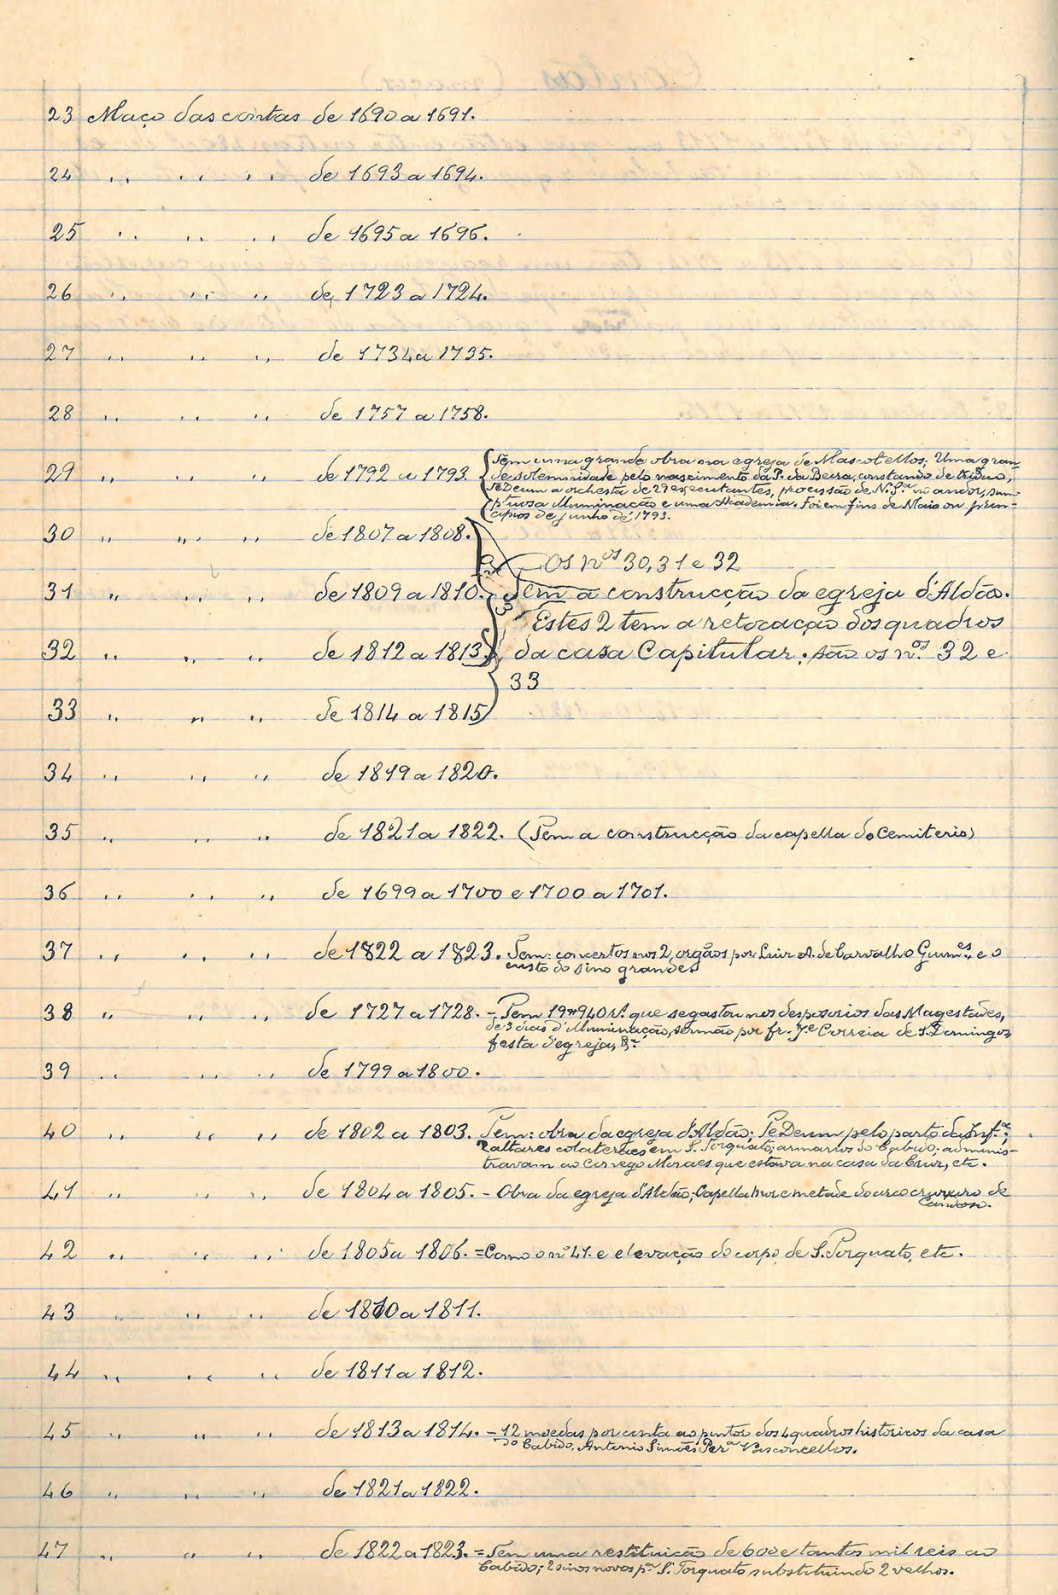 23 Maço das contas de 1690 a 1691.
24 " " " de 1693 a 1694.
25 " " " de 1695 a 1696.
26 " " " de 1723 a 1724.
27 " " " de 1734 a 1735.
28 " " " de 1757 a 1758.
29 " " " de 1792 a 1793
Tem uma grande obra na egreja de Mascotellos; Uma gran-
de solemnidade pelo nascimento da P. da Beira, constando de triduo,
TeDeum a orchesta de 29 executantes, procissão de N. Sr.ª no andor, sum-
ptuosa illuminação e uma Academia. Foi em fins de Maio ou prin-
cipios de junho de 1793.
30 " " " de 1807 a 1808.
Os nos 30, 31 e 32
31 " " " de 1809 a 1810. Tem a construcção da egreja d'Aldão.
Estes 2 tem a retocação dos quadros
32 " " " de 1812 a 1813 da casa Capitular. são os nos 32 e
33
33 " " " de 1814 a 1815
34 " " " de 1819 a 1820.
35 " " " de 1821 a 1822. (Tem a construcção da capella do Cemiterio)
36 " " " de 1699 a 1700 e 1700 a 1701.
37 " " " de 1822 a 1823. Tem: concertos nos 2 orgãos por Luiz A. de Carvalho Guim.es, e o
custo do sino grande.
38 " " " de 1727 a 1728. - Tem 19#940 r.s que se gastou nos desposorios das Magestades,
de 3 dias d'illuminação, sermão por fr. J.e Correia de S. Domingos,
festa d'egreja, &.
39 " " " de 1799 a 1800.
40 " " " de 1802 a 1803. Tem: obra da egreja d'Aldão; TeDeum pelo parto da Inf.ta;
2 altares colateraes em S. Torquato; armarios do Cabido; adminis-
travam ao Conego Moraes que estava na casa da Cruz, etc.
41 " " " de 1804 a 1805. - Obra da egreja d'Aldão; Capella mor e metade do arco cruzeiro de
42 " " " de 1805 a 1806. = Como o nº 41. e elevação do corpo de S. Torquato, etc.
43 " " " de 1810 a 1811.
44 " " " de 1811 a 1812.
45 " " " de 1813 a 1814. - 12 moedas por conta ao pintor dos 4 quadros historicos da casa
do Cabido, Antonio Simões Per.ª Vasconcellos.
46 " " " de 1821 a 1822.
47 " " " de 1822 a 1823. = Tem uma restituição de 600 e tantos mil reis ao
Cabido; 2 sinos novos p.ª S. Torquato substituindo 2 velhos.